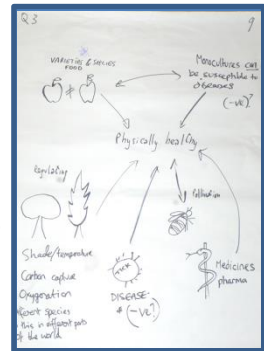 Q3
9
VARIETIES & SPECIES
FOOD
≠
Monocultures can
be susceptible to
diseases
(-ve)?
Physically healthy
Regulating
Pollination
TICK
Shade/temperature
Carbon capture
Oxygenation
Different species
thrive in different parts
of the world
DISEASE
(-ve?)
Medicines
pharma